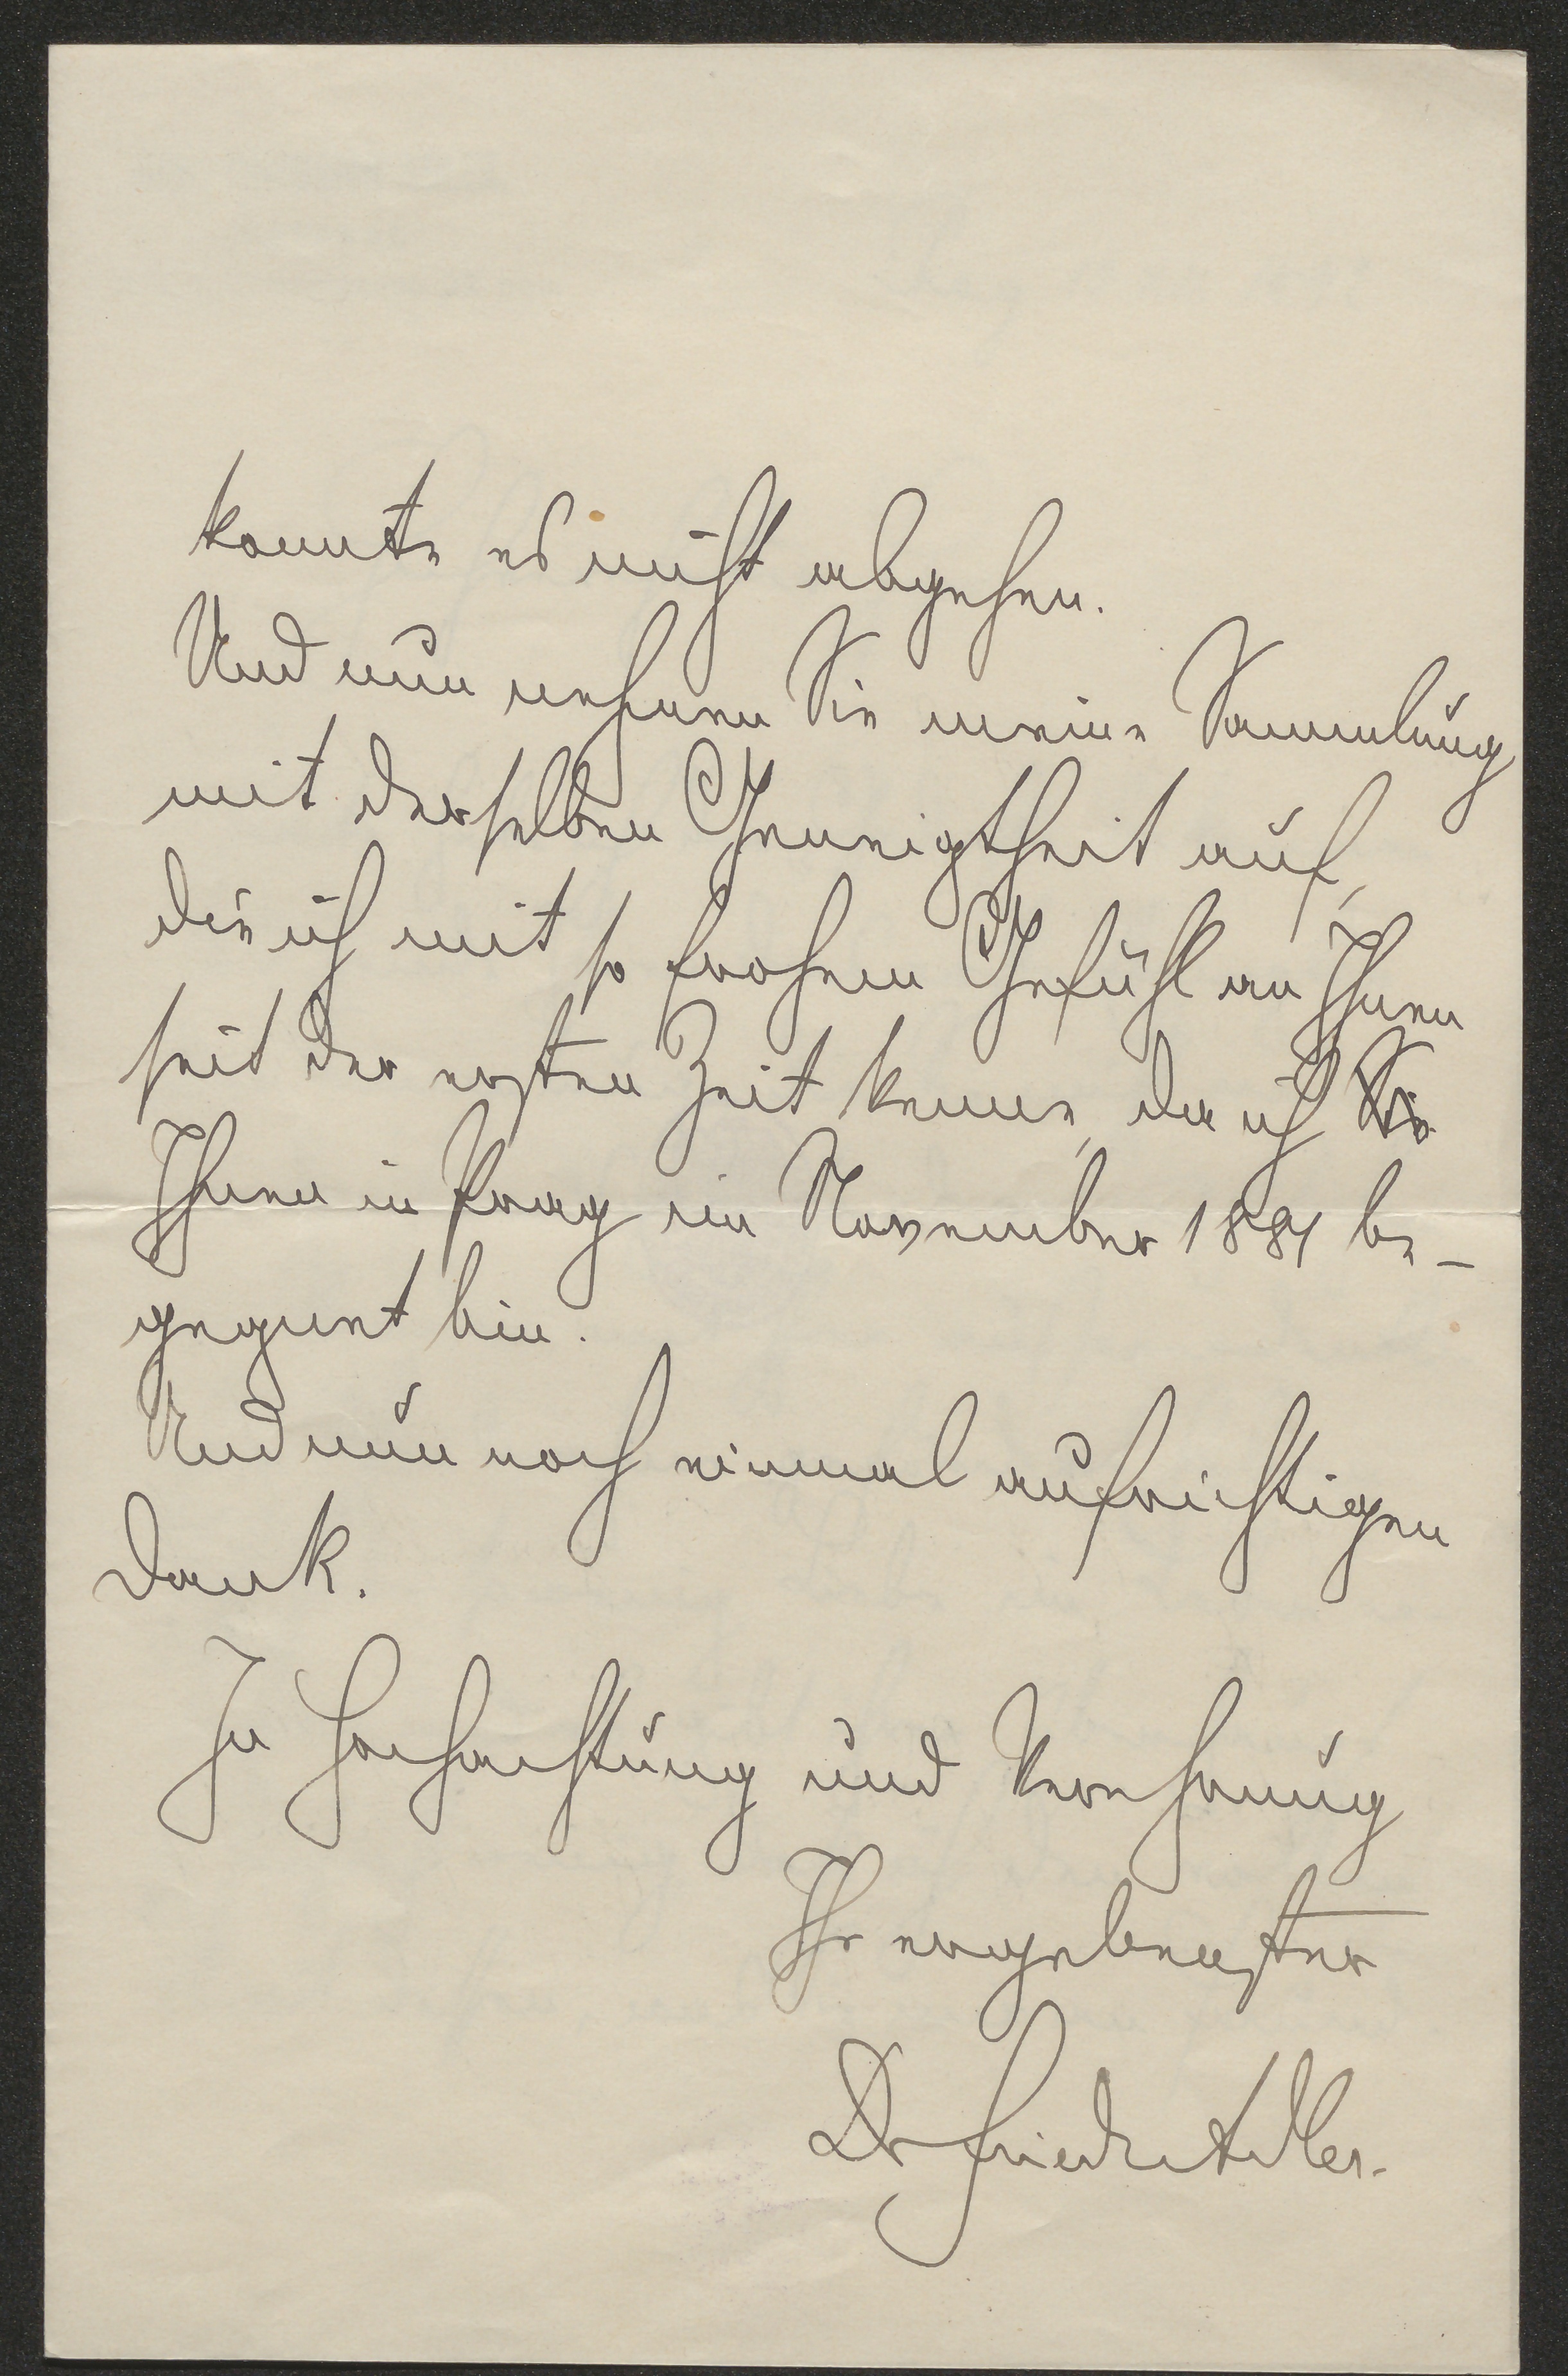 konnte es nicht abgehen.
Und nun nehmen Sie meine Sammlung
mit derselben Geneigtheit auf,
die ich mit so frohem Gefühl an Ihnen
seit der ersten Zeit kenne, da ich Sie
Ihnen in Prag im November 1884 be-
gegnet bin.
Und nun noch einmal aufrichtigen
Dank.
In Hochachtung und Verehrung
Ihr ergebenster
Dr Friedr Adler.